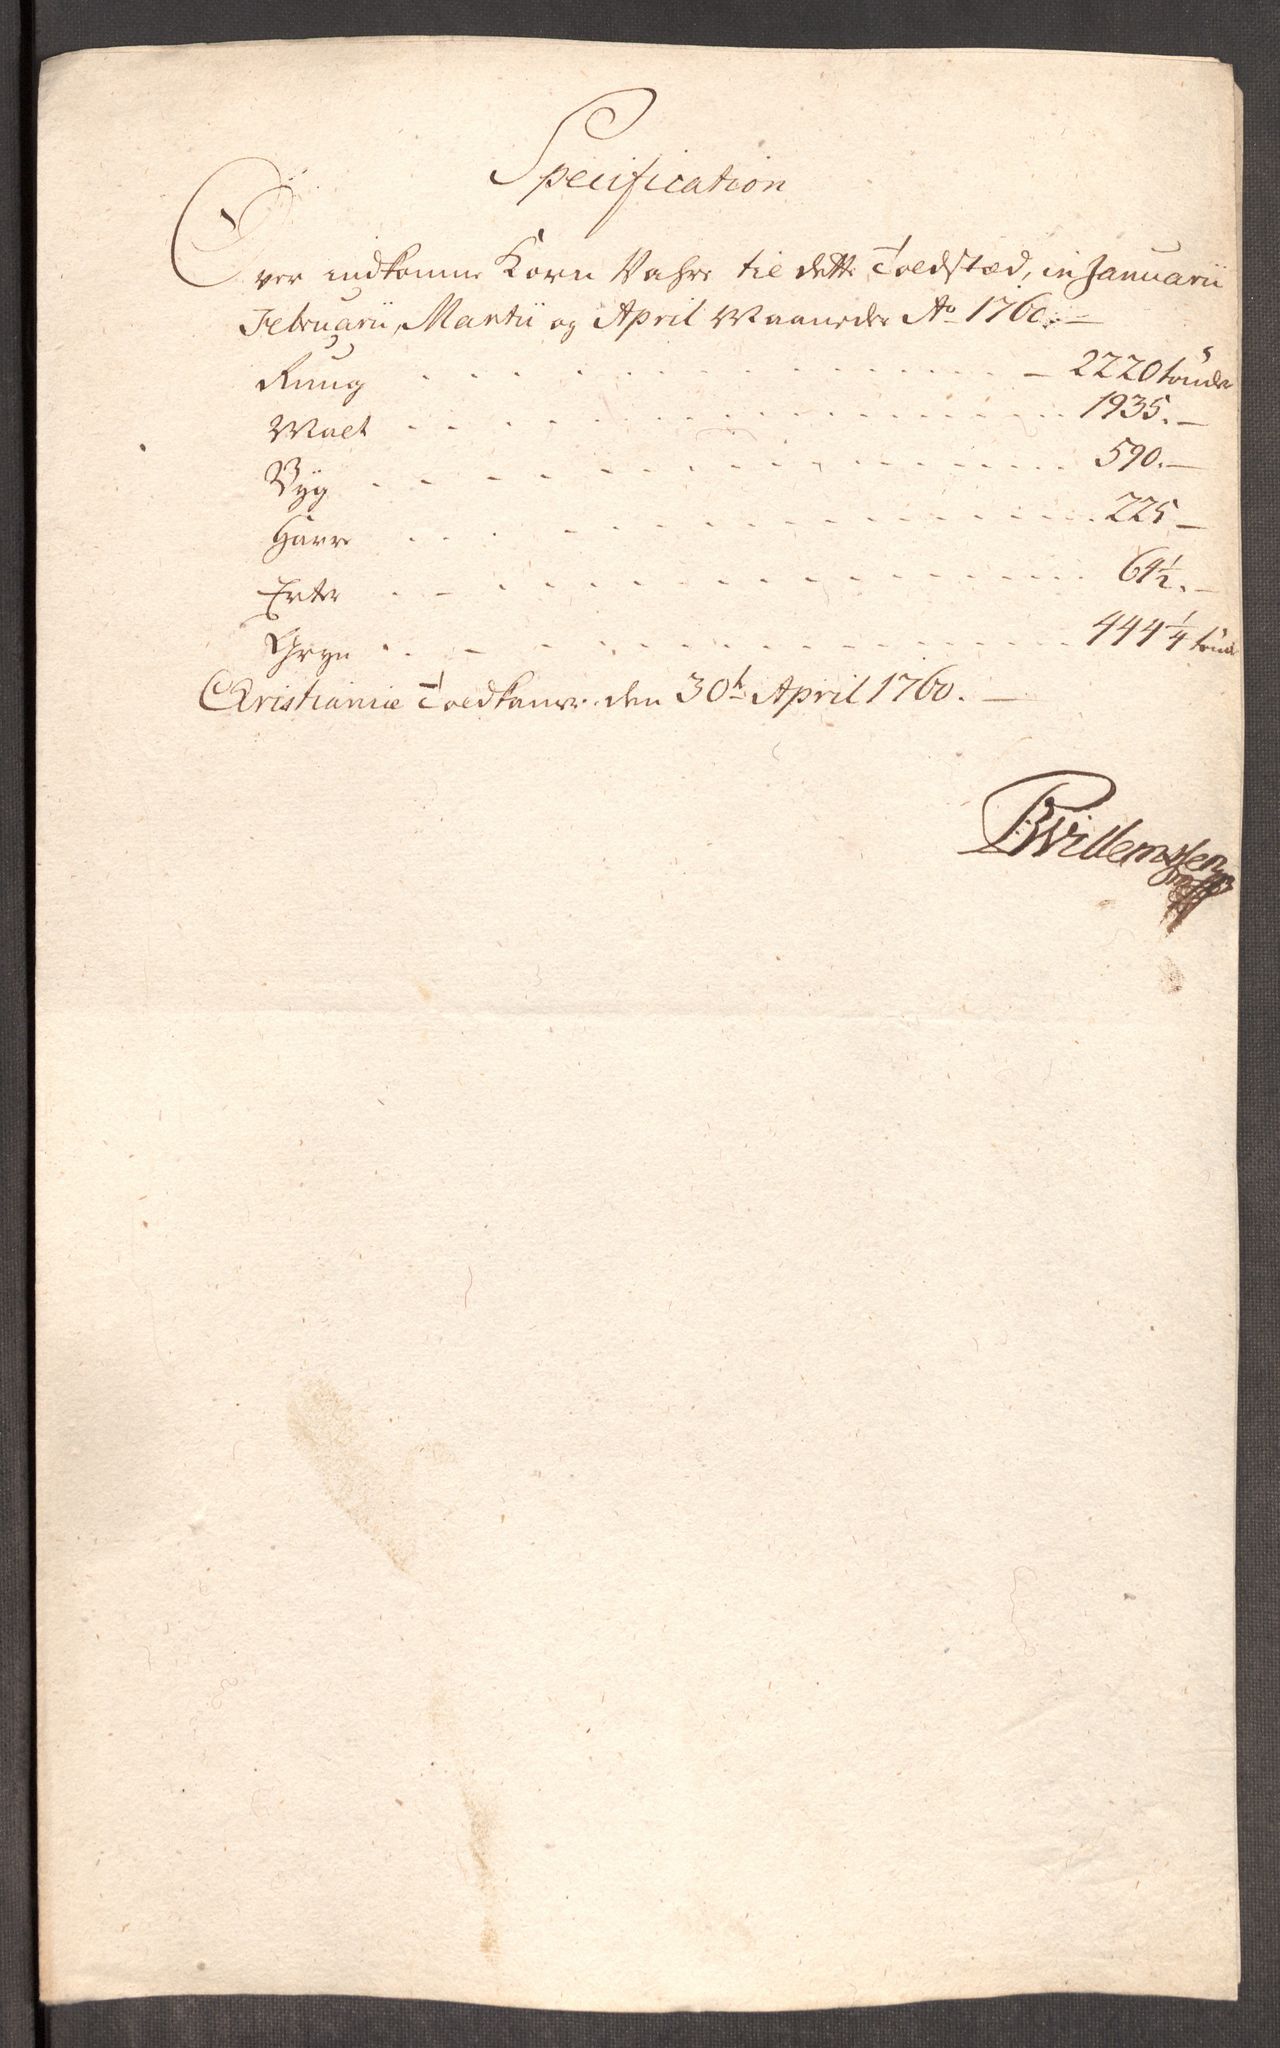 Specification
Over indkomne Korn Vahre til dette Toldstæd, in Januarii
Februarii, Martii og April Maaneder Ao 1760. —
Ruug — 2220 tønder
Malt 1935. —
Byg 590. —
Havre 225 —
Erter 61½. —
Gryn 444¼ tønd
Christianiæ Toldkamer den 30te April 1760. —
BWillemssen